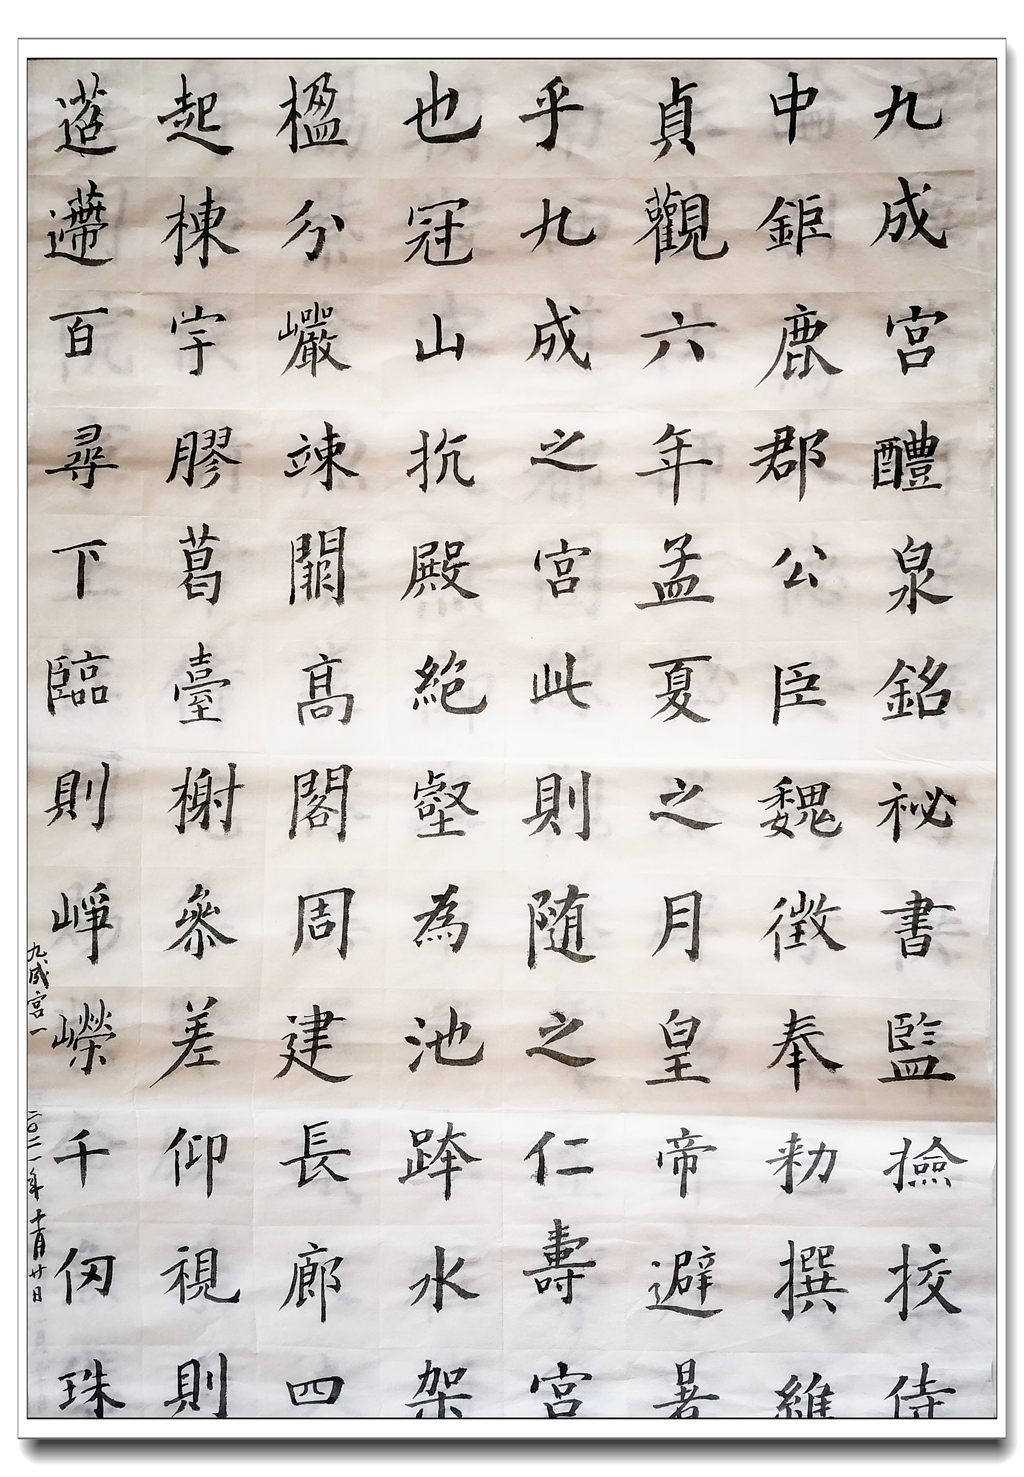 九成宮醴泉銘祕書監撿挍侍
中鉅鹿郡公臣魏徵奉勑撰維
貞觀六年孟夏之月皇帝避暑
乎九成之宮此則随之仁壽宮
也冠山抗殿絶壑為池跨水架
楹分巖竦闕髙閣周建長廊四
起棟宇膠葛臺榭參差仰視則
迢遰百尋下臨則崢嶸千仞珠
九成宮一
二〇二一年十一月廿日